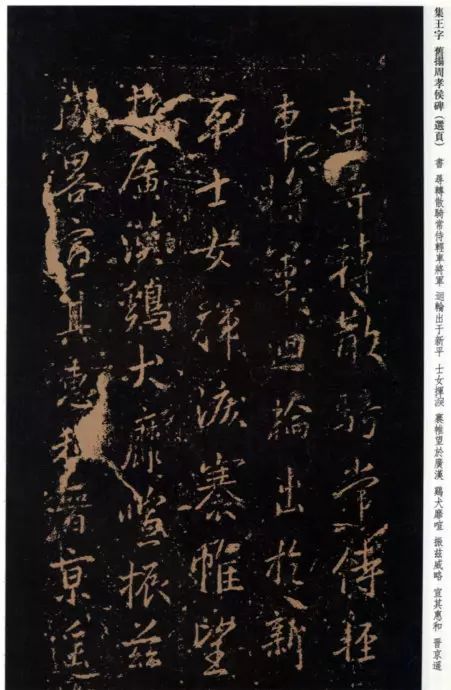 集王字 舊搨周孝侯碑(選頁) 書 尋轉散騎常侍輕車將軍 迴輪出于新平 士女揮淚 褰帷望於廣漢 鷄犬靡喧 振兹威略 宣其惠和 晉京遥
書尋轉散騎常侍輕
車將軍迴輪出於新
平士女揮淚褰帷望
於廣漢鷄犬靡喧振兹
威略宣其惠和晉京遥